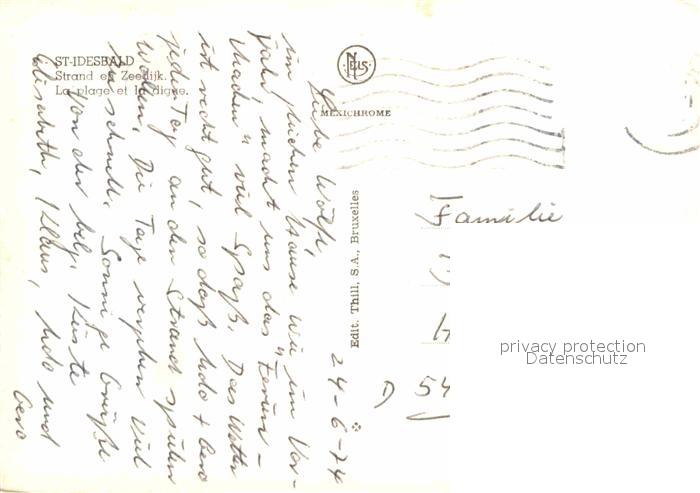 ST-IDESBALD
Strand en Zeedijk.
La plage et la digue.
NELS
MEXICHROME
Edit. Thill, S.A., Bruxelles
24-6-74
Liebe Wölfe,
im gleichen Hause wie im Vor-
jahr, macht uns das "Ferien-
machen" viel Spaß. Das Wetter
ist recht gut, so daß Udo + Gero
jeden Tag an den Strand spielen
wollen. Die Tage vergehen viel
zu schnell. Sonnige Grüße
von der belg. Küste
Elisabeth, Klaus, Udo und
Gero
Familie
D 54
privacy protection
Datenschutz